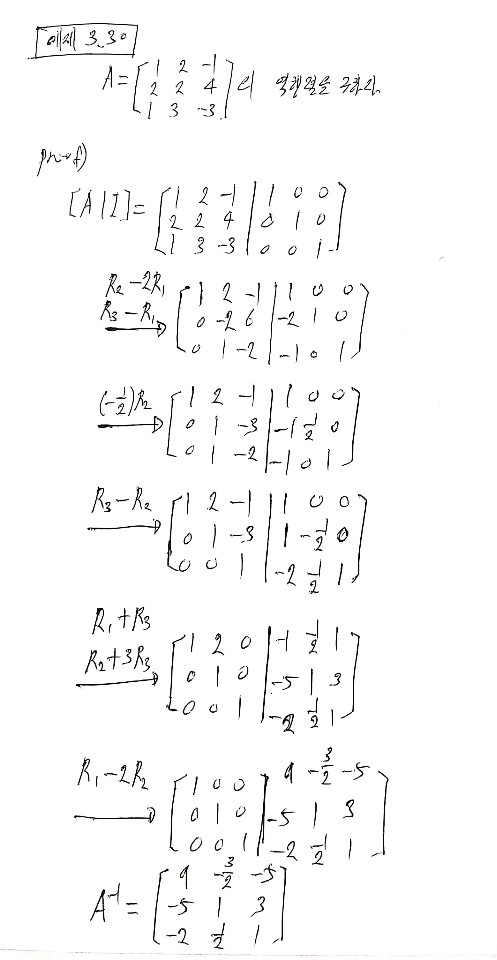 예제 3.30
A = [1 2 -1; 2 2 4; 1 3 -3] 의 역행렬을 구하라
proof)
[A | I] = [1 2 -1 | 1 0 0; 2 2 4 | 0 1 0; 1 3 -3 | 0 0 1]
R₂ -2R₁
R₃ - R₁ → [1 2 -1 | 1 0 0; 0 -2 6 | -2 1 0; 0 1 -2 | -1 0 1]
(-1/2)R₂ → [1 2 -1 | 1 0 0; 0 1 -3 | -1 1/2 0; 0 1 -2 | -1 0 1]
R₃ - R₂ → [1 2 -1 | 1 0 0; 0 1 -3 | 1 -1/2 0; 0 0 1 | -2 1/2 1]
R₁ + R₃
R₂ + 3R₃ → [1 2 0 | -1 1/2 1; 0 1 0 | -5 1 3; 0 0 1 | -2 1/2 1]
R₁ - 2R₂ → [1 0 0 | 9 -3/2 -5; 0 1 0 | -5 1 3; 0 0 1 | -2 1/2 1]
A⁻¹ = [9 -3/2 -5; -5 1 3; -2 1/2 1]